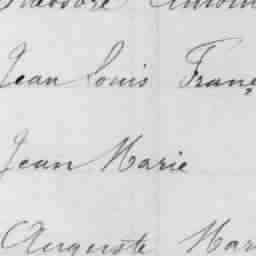 Jean Louis Franç
Jean Marie
Auguste Mar